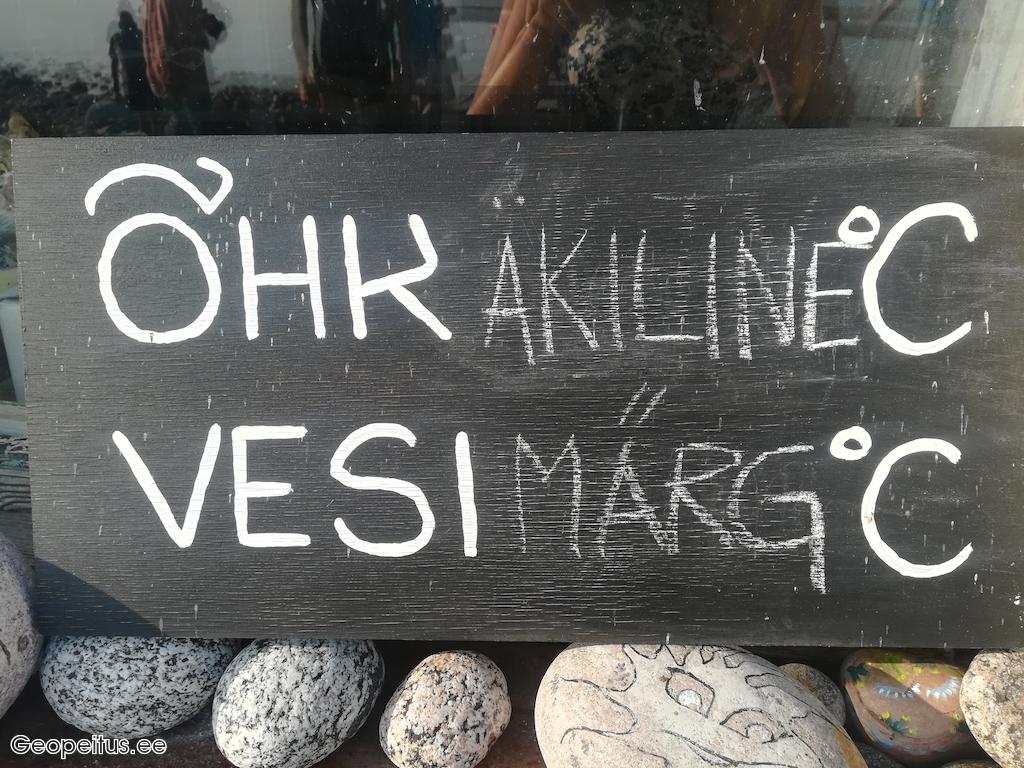 ÕHK ÄKILINE °C
VESI MÄRG °C
Geopeitus.ee